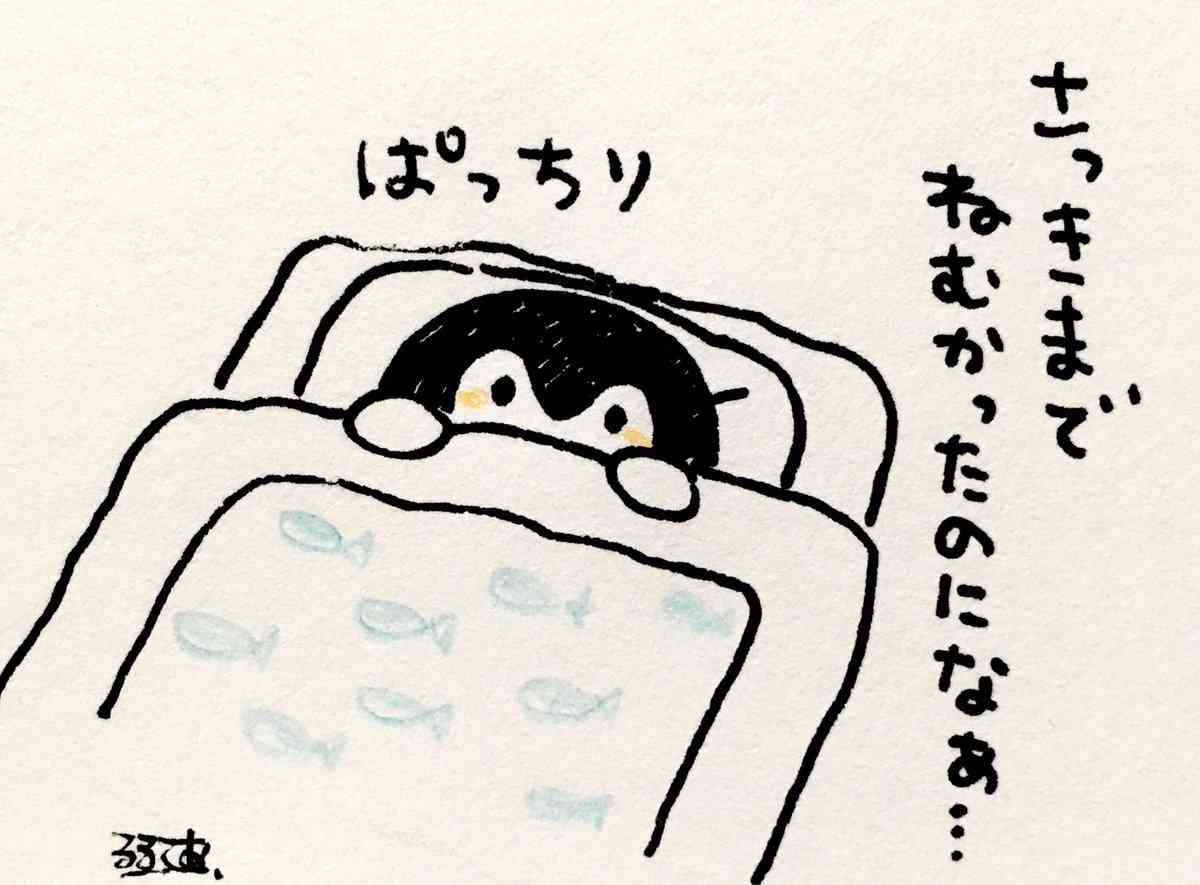 さっきまで
ねむかったのになぁ…
ぱっちり
るるてあ.